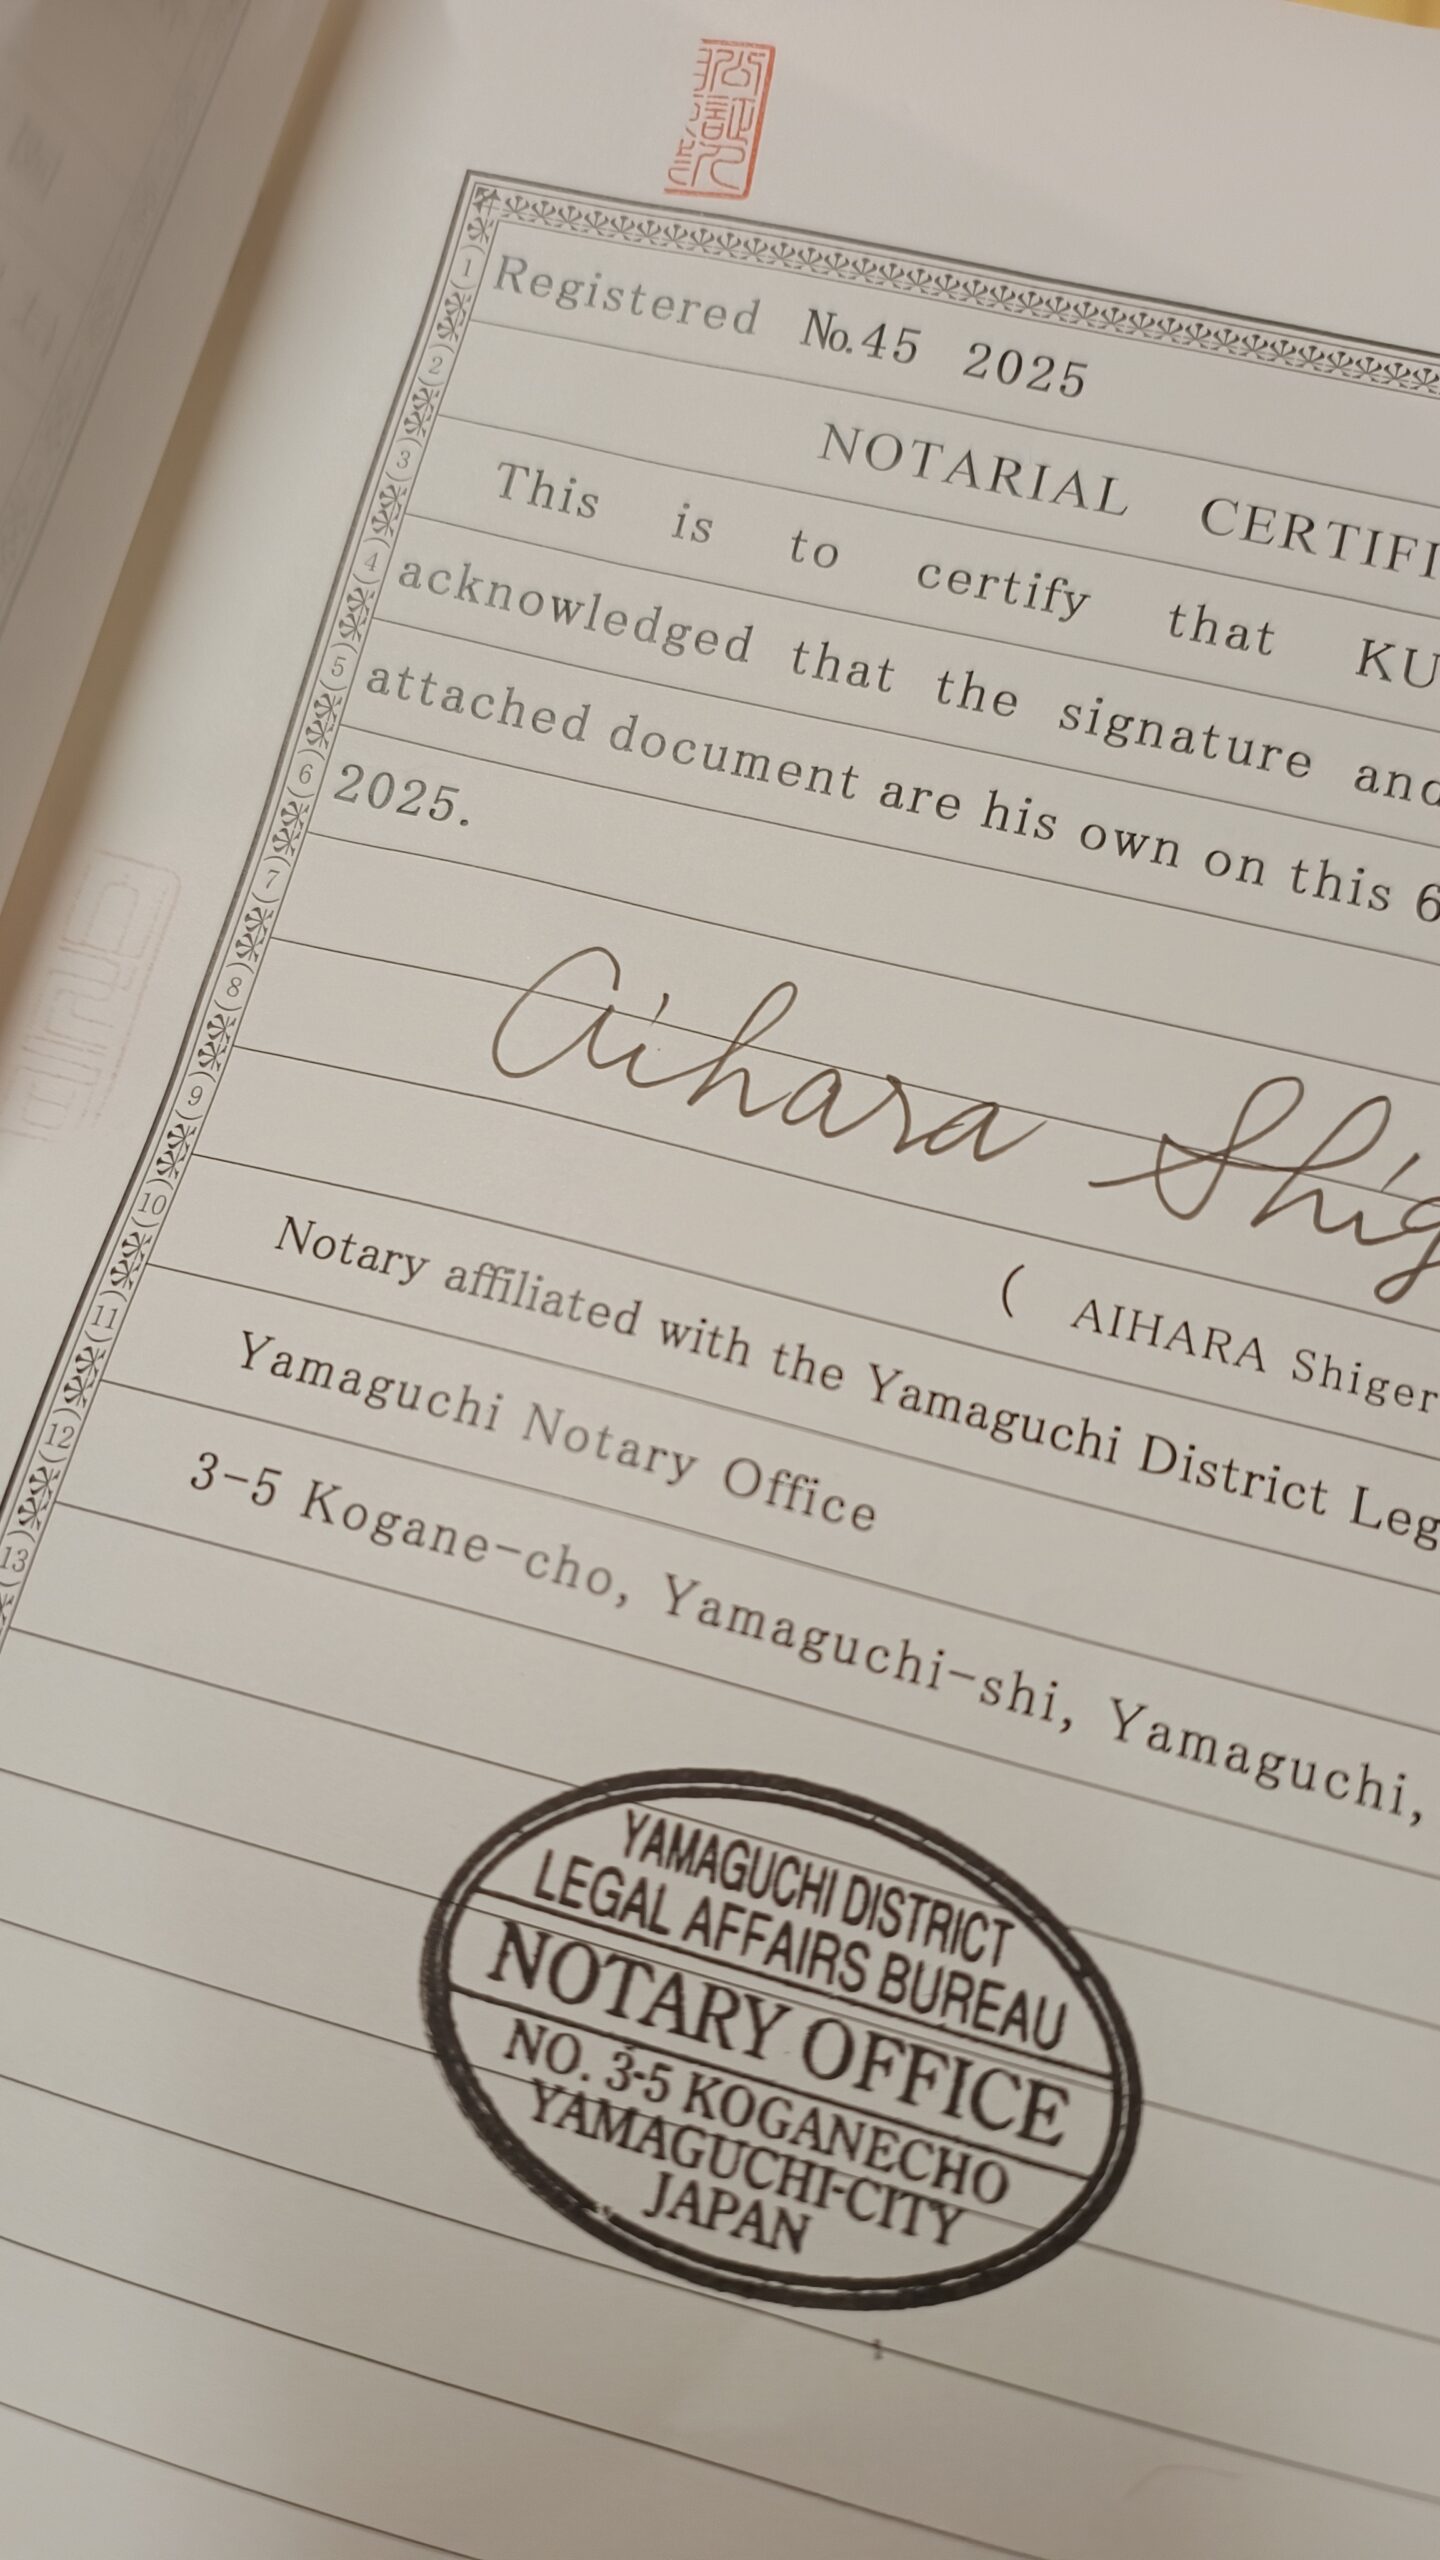 Registered №45 2025
NOTARIAL CERTIFI
This is to certify that KU
acknowledged that the signature and
attached document are his own on this 6
2025.
Aihara Shig
( AIHARA Shiger
Notary affiliated with the Yamaguchi District Leg
Yamaguchi Notary Office
3-5 Kogane-cho, Yamaguchi-shi, Yamaguchi,
YAMAGUCHI DISTRICT
LEGAL AFFAIRS BUREAU
NOTARY OFFICE
NO. 3-5 KOGANECHO
YAMAGUCHI-CITY
JAPAN
1
2
3
4
5
6
7
8
9
10
11
12
13